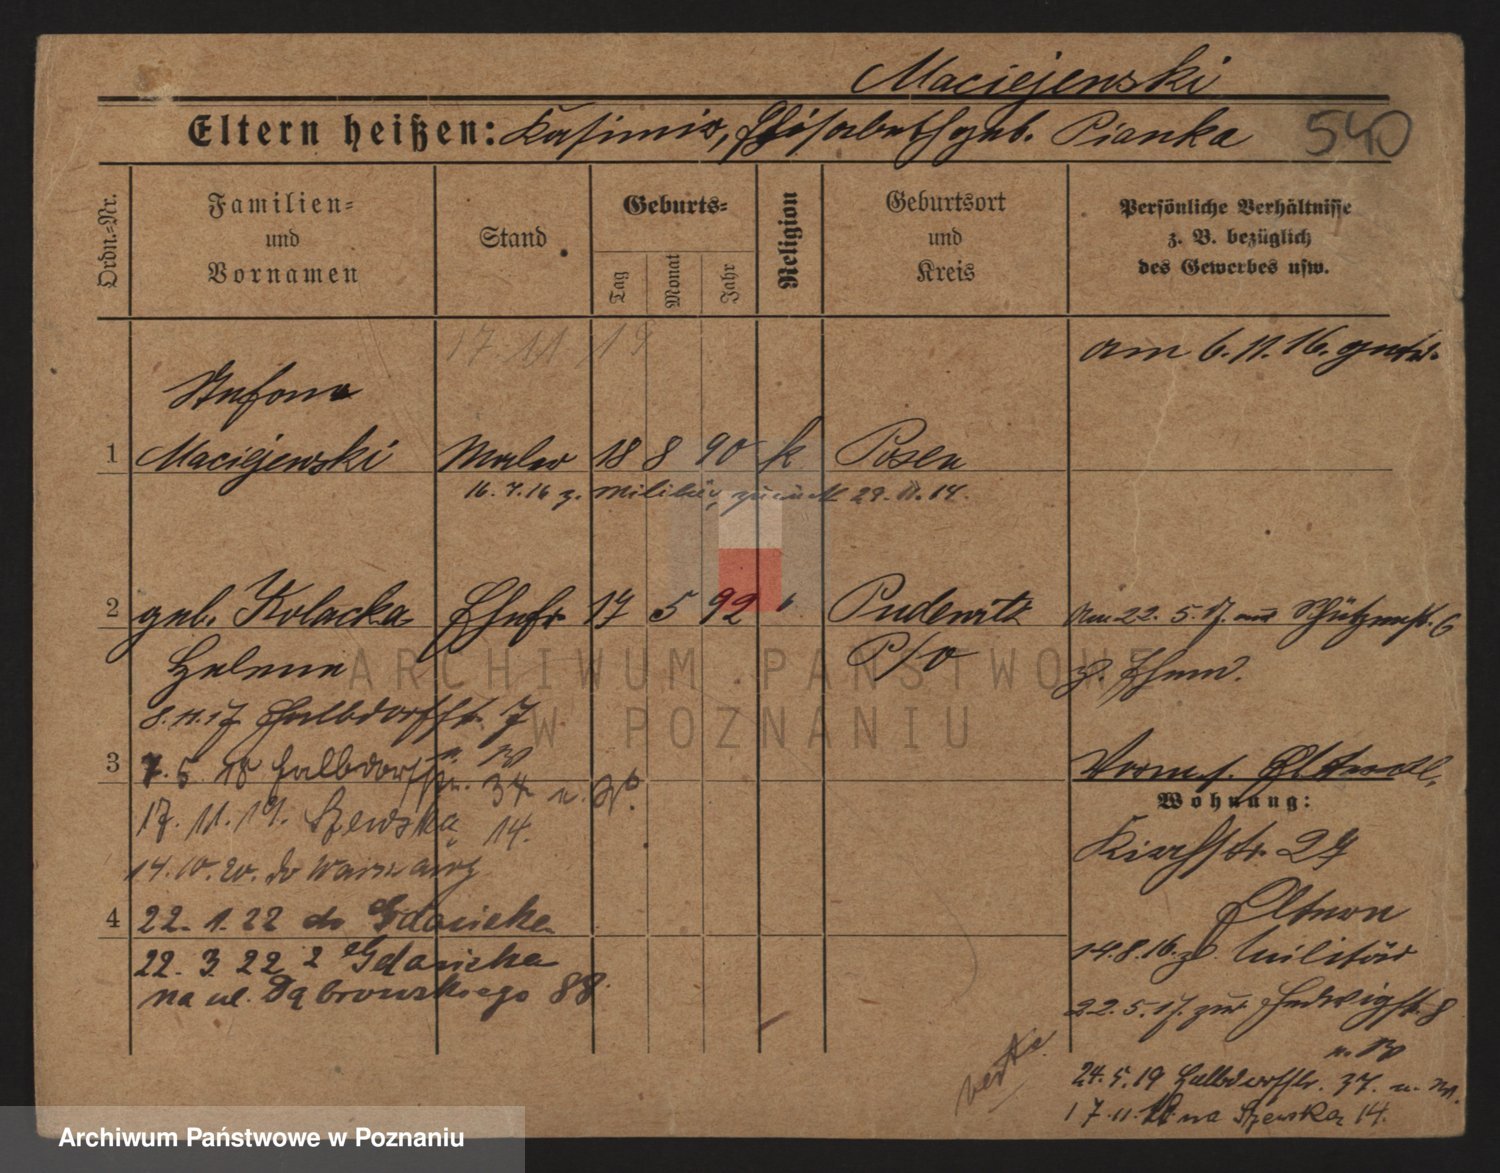 Maciejewski
Eltern heißen: Kasimir, Elisabeth geb. Pianka
540
Ordn.-Nr.
Familien-
und
Vornamen
Stand
Geburts-
Tag
Monat
Jahr
Religion
Geburtsort
und
Kreis
Persönliche Verhältnisse
z. B. bezüglich
des Gewerbes usw.
17.11.19
am 6.11.16.
Stefan
1 Maciejewski Maler 18 8 90 k Posen
16.7.16 z. Militär, zurück 29.11.17.
2 geb. Kolacka Ehefr 17 5 92 Pudewitz
am 22.5.17. Schützenstr. 6
Helene
P/O
z. Ehem.
8.11.17 Halbdorfstr. 7
3 7.5.18 Halbdorfstr. 34 u.
Wohnung:
17.11.19. Szewska 14.
Kirchstr. 27
14.10.20. do Warszawy
Eltern
4 22.1.22 do Gdańska
14.8.16. z. Militär
22.3.22 z Gdańska
na ul. Dąbrowskiego 88.
22.5.17. zur Hedwigstr. 8
24.5.19 Halbdorfstr. 37. u.
17.11.19 na Szewska 14.
ARCHIWUM PAŃSTWOWE
W POZNANIU
Archiwum Państwowe w Poznaniu